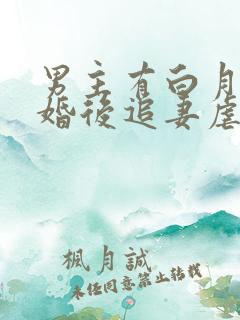 男主有白月
婚後追妻虐
楓月誠
未經同意禁止轉載